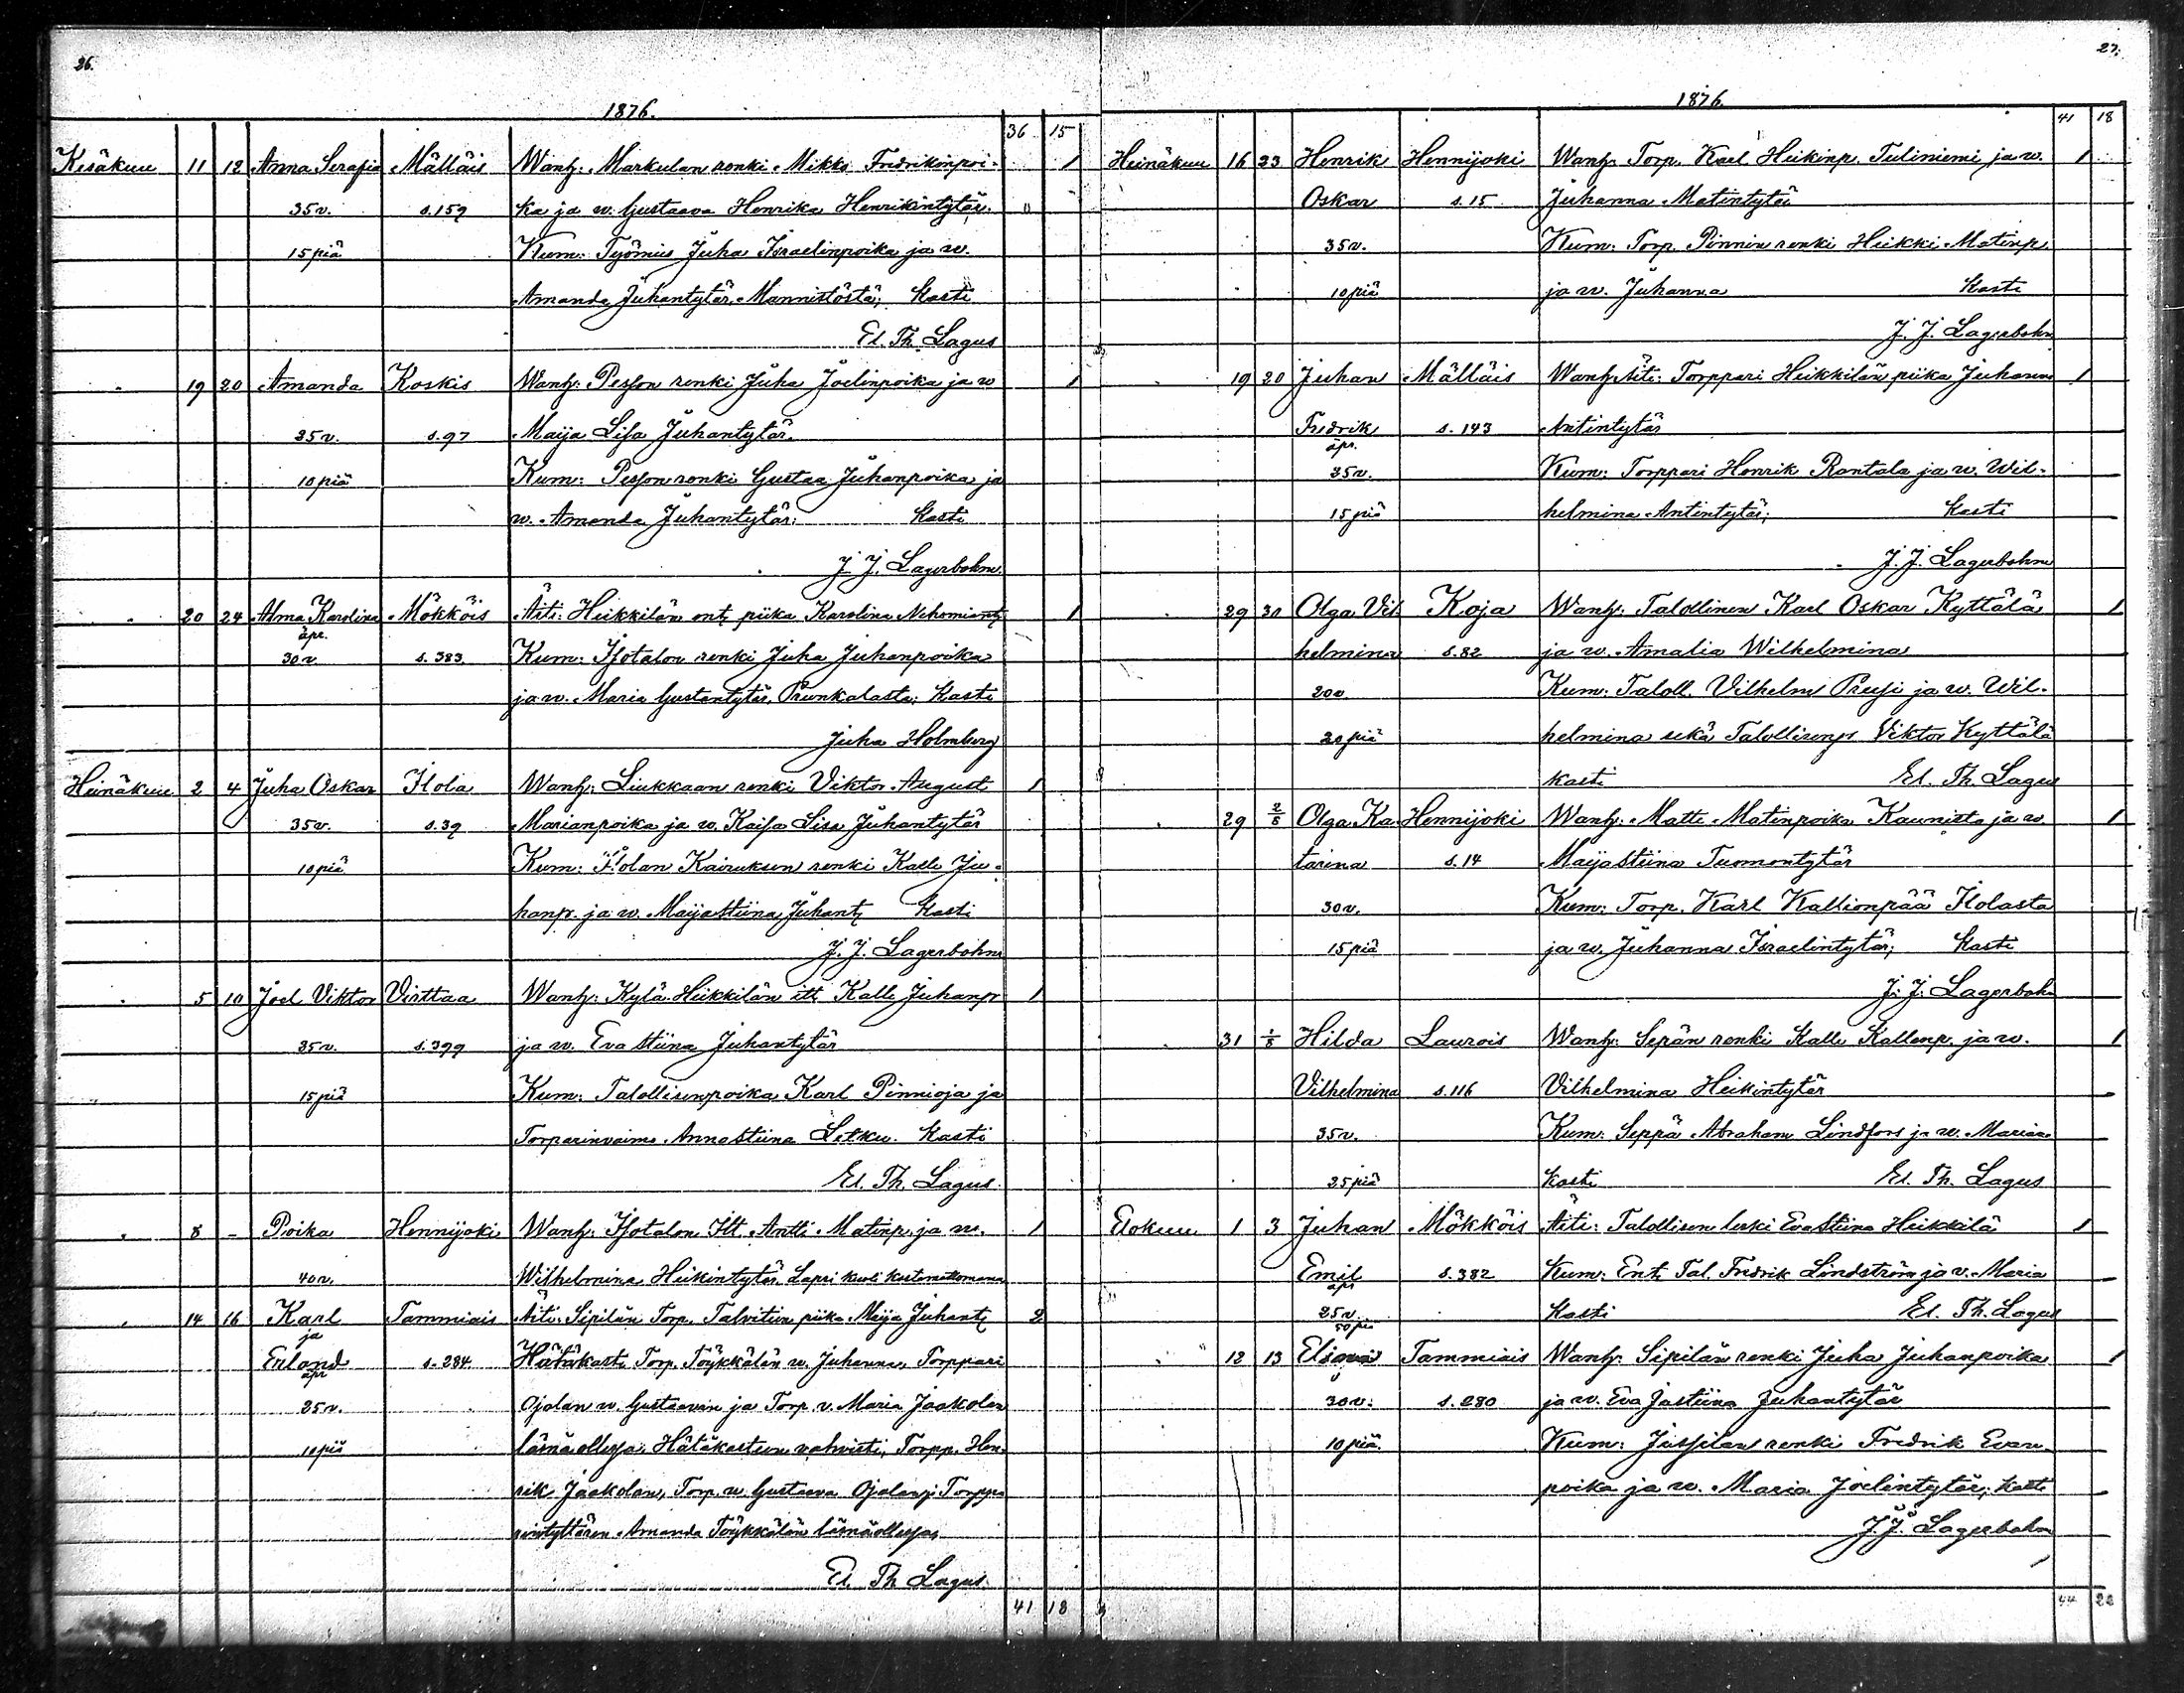 26.
1876.
36 15
Kesäkuu 11 12 Anna Serafia Mälläis Wanh: Markulan renki Mikko Fredrikinpoi- 1
35 v. s. 159 ka ja w. Gustaava Henrika Henrikintytär.
15 piä Kum: Työmies Juha Israelinpoika ja w.
Amanda Juhantytär Mannistöstä; Kasti
El. Th. Lagus
" 19 20 Amanda Koskis Wanh: Pesson renki Juha Joelinpoika ja w 1
25 v. s. 97 Maija Lisa Juhantytär.
10 piä Kum: Pesson renki Gustaa Juhanpoika ja
w. Amanda Juhantytär: Kasti
J. J. Lagerbohm.
" 20 24 Alma Karolina Mökköis Äiti: Heikkilän ent. piika Karolina Nehemiant. 1
äpr.
30 v. s. 383. Kum: Isotalon renki Juha Juhanpoika
ja w. Maria Gustantytär, Prunkalasta; Kasti
Juha Holmberg
Heinäkuu 2 4 Juha Oskar Ilola Wanh: Liukkaan renki Viktor August 1
35 v. s. 39 Marianpoika ja w. Kaisa Lisa Juhantytär
10 piä Kum: Ilolan Kairuksen renki Kalle Ju-
hanp. ja w. Maija Stiina Juhant. Kasti
J. J. Lagerbohm
" 5 10 Joel Viktor Virttaa Wanh: Kylä-Heikkilän itt. Kalle Juhanp 1
35 v. s. 399 ja w. Eva Stiina Juhantytär
15 piä Kum: Talollisenpoika Karl Pinnioja ja
Torparinvaimo Anna Stiina Letku. Kasti
El. Th. Lagus.
" 8 - Poika Hennijoki Wanh: Isotalon Itt. Antti Matinp. ja w. 1
40 v. Wilhelmina Heikintytär. Lapsi kuoli kastamattomana
" 14 16 Karl Tammiais Äiti: Sipilän Torp. Talvitien piika Maija Juhant. 2
ja
Erland s. 284 Hätäkasti Torp. Töykkälän w. Juhanna, Torppari
äpr
25 v. Ojalan w. Gustaavan ja Torp. v. Maria Jaakolan
10 piä läsnäollessa. Hätäkasteen vahvisti, Torpp. Hen-
rik Jaakolan, Torp. w. Gustaava Ojalan ja Torppa-
rintyttären Amanda Töykkälän läsnäollessa,
El. Th. Lagus.
41 18
27.
1876.
41 18
Heinäkuu 16 23 Henrik Hennijoki Wanh. Torp. Karl Heikinp. Tuliniemi ja w. 1
Oskar s. 15 Juhanna Matintytär
35 v. Kum: Torp. Pinnin renki Heikki Matinp.
10 piä ja w. Juhanna Kasti
J. J. Lagerbohm
" 19 20 Juhan Mälläis Wanh. Äiti: Torppari Heikkilän piika Juhanna 1
Fredrik s. 143 Antintytär
äpr.
25 v. Kum: Torppari Henrik Rantala ja w. Wil-
15 piä helmina Antintytär; Kasti
J. J. Lagerbohm
" 29 30 Olga Vil Koja Wanh: Talollinen Karl Oskar Kyttälä 1
helmina s. 82 ja w. Amalia Wilhelmina
20 v Kum: Taloll. Vilhelm Preusi ja w. Wil-
20 piä helmina sekä Talollisenp. Viktor Kyttälä
kasti El. Th. Lagus
" 29 2/8 Olga Ka- Hennijoki Wanh: Matti Matinpoika Kaunisto ja w. 1
tarina s. 14 Maija Stiina Tuomontytär
30 v. Kum: Torp. Karl Kallionpää Ilolasta
15 piä ja w. Juhanna Israelintytär; Kasti
J. J. Lagerbohm
" 31 1/8 Hilda Laurois Wanh: Sepän renki Kalle Kallenp. ja w. 1
Vilhelmina s. 116 Vilhelmina Heikintytär
35 v. Kum: Seppä Abraham Lindfors ja w. Maria
25 piä Kasti El. Th. Lagus
Elokuu 1 3 Juhan Mökköis Äiti: Talollisen leski Eva Stiina Heikkilä 1
Emil s. 382 Kum: Ent. Tal. Fredrik Lindström ja v. Maria
äpr
25 v Kasti El. Th. Lagus
50 piä
" 12 13 Tammiais Wanh: Sipilän renki Juha Juhanpoika 1
30 v. s. 280 ja w. Eva Jastiina Juhantytär
10 piä Kum: Jussilan renki Fredrik Evan
poika ja w. Maria Joelintytär; Kasti
J. J. Lagerbohm
44 20